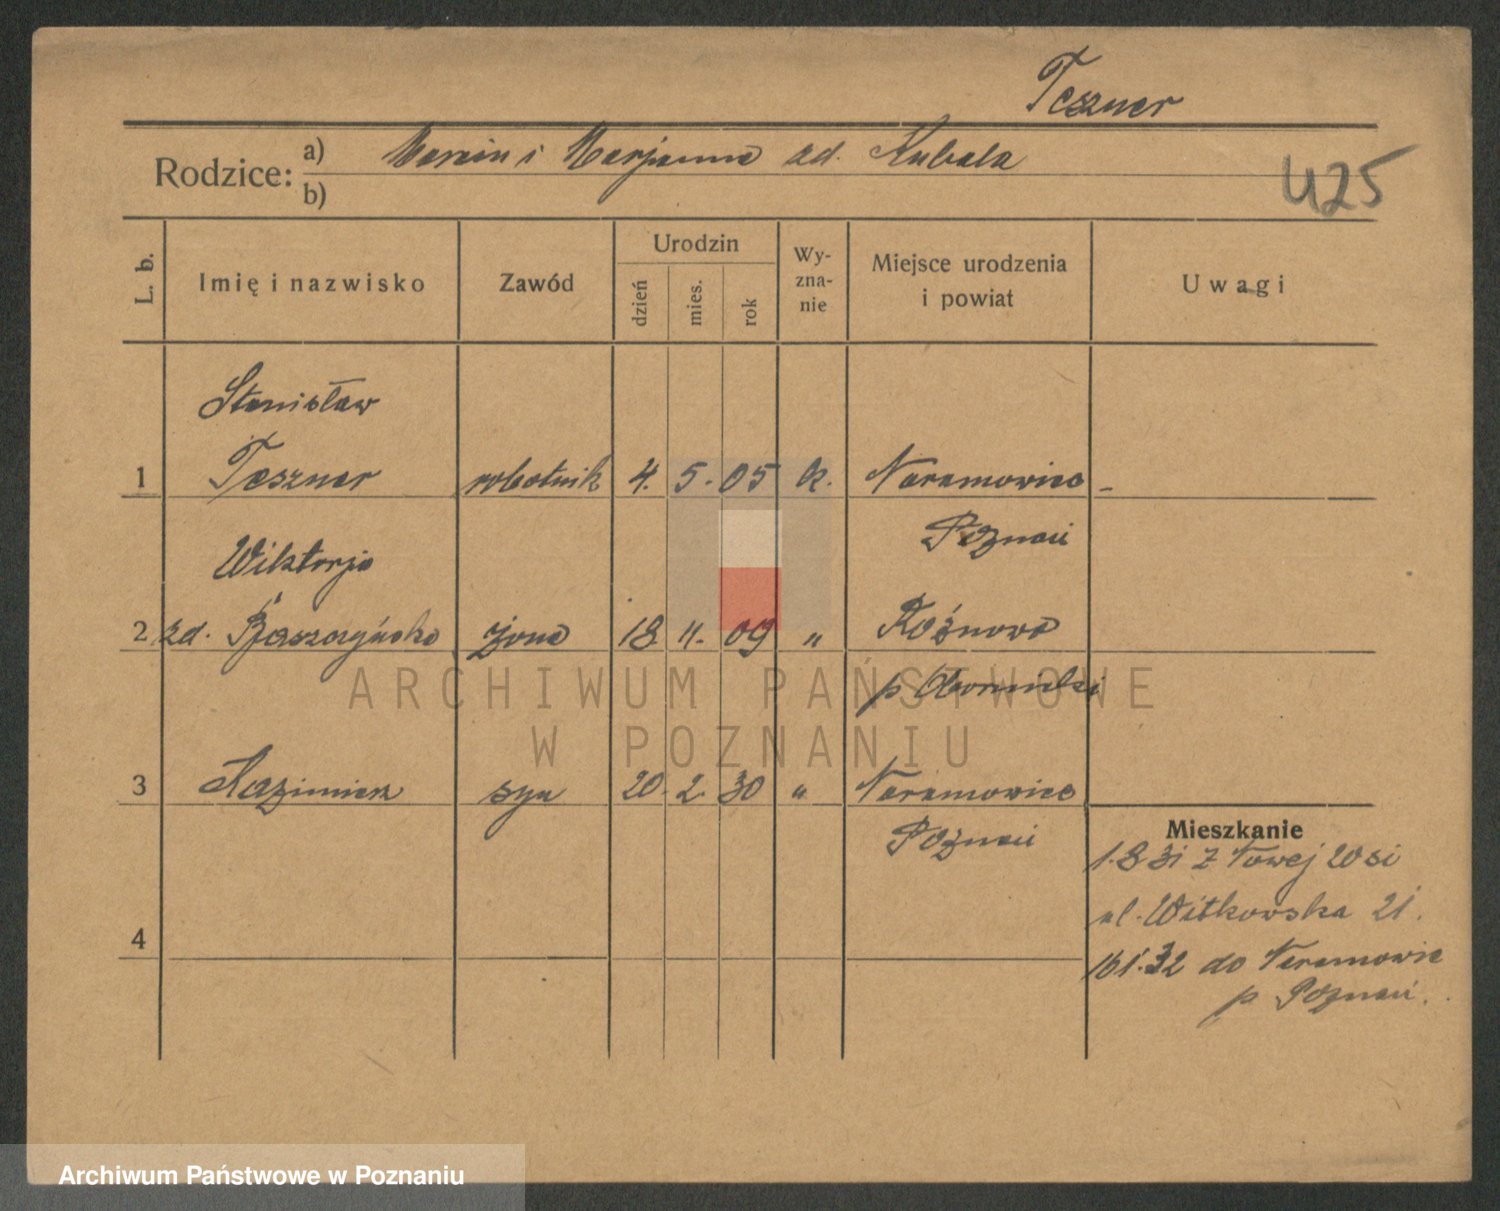 Teszner
Rodzice: a) Marcin i Marjanna zd. Kubala
b)
425
L. b.
Imię i nazwisko
Zawód
Urodzin
dzień
mies.
rok
Wy-
zna-
nie
Miejsce urodzenia
i powiat
Uwagi
Stanisław
1 Teszner robotnik 4. 5. 05 k. Naramowice -
Poznań
Wiktorja
2 zd. żona 18 11. 09 " Rożnowo
p Oborniki
3 Kazimierz syn 20. 2. 30 " Naramowice
Poznań
4
Mieszkanie
1.8 31 z Nowej 20 si
ul. Witkowska 21.
16 1. 32 do Naramowic
p Poznań.
ARCHIWUM PAŃSTWOWE
W POZNANIU
Archiwum Państwowe w Poznaniu